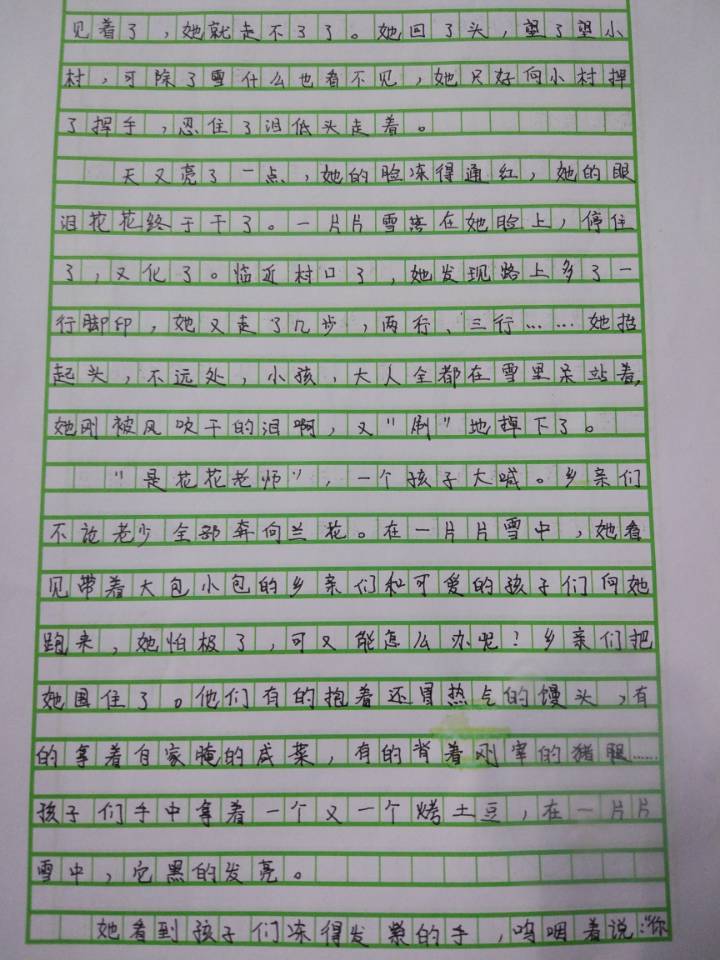 见着了，她就走不了了。她回了头，望了望小
村，可除了雪什么也看不见，她只好向小村挥
了挥手，忍住了泪低头走着。
天又亮了一点，她的脸冻得通红，她的眼
泪花花终于干了。一片片雪落在她脸上，停住
了，又化了。临近村口了，她发现路上多了一
行脚印，她又走了几步，两行、三行……她抬
起头，不远处，小孩，大人全都在雪里呆站着，
她刚被风吹干的泪啊，又“刷”地掉下了。
“是花花老师”，一个孩子大喊。乡亲们
不论老少全部奔向兰花。在一片片雪中，她看
见带着大包小包的乡亲们和可爱的孩子们向她
跑来，她怕极了，可又能怎么办呢？乡亲们把
她围住了。他们有的抱着还冒热气的馒头，有
的拿着自家腌的咸菜，有的背着刚宰的猪腿……
孩子们手中拿着一个又一个烤土豆，在一片片
雪中，它黑的发亮。
她看到孩子们冻得发紫的手，呜咽着说：“你